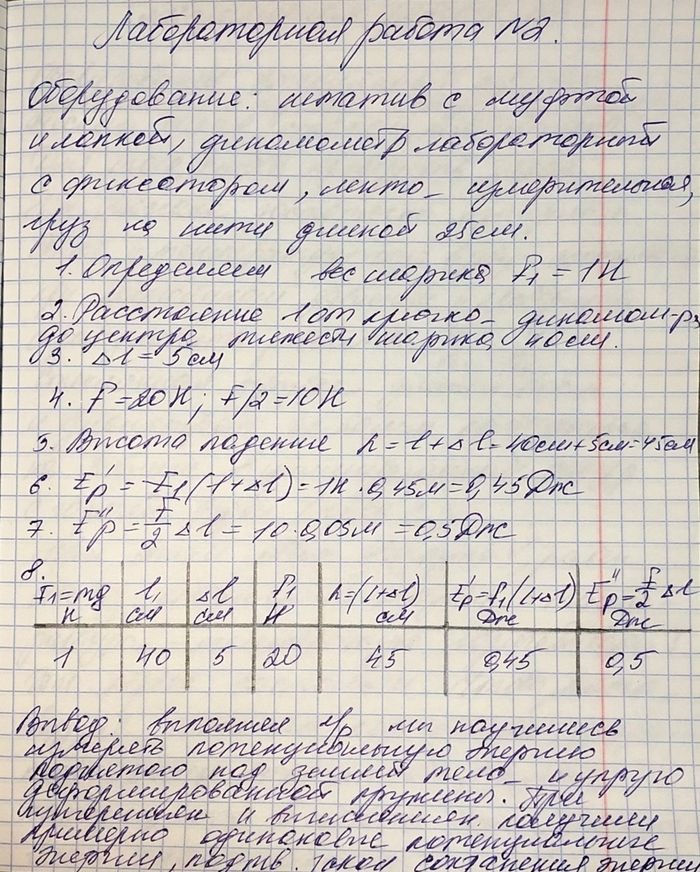 Лабораторная работа №2.
Оборудование: штатив с муфтой
и лапкой, динамометр лабораторный
с фиксатором, лента измерительная,
груз на нити длиной 25см.
1. Определяем вес шарика F₁ = 1Н
2. Расстояние l от крючка динамом-ра
до центра тяжести шарика 40см.
3. Δl = 5см
4. F = 20Н; F/2 = 10Н
5. Высота падения h = l + Δl = 40см + 5см = 45см
6. E'p = F₁(l + Δl) = 1Н · 0,45м = 0,45Дж
7. E''p = F/2 Δl = 10 · 0,05м = 0,5Дж
8.
F₁=mg Н | l, см | Δl см | F₁ Н | h=(l+Δl) см | E'p=F₁(l+Δl) Дж | E''p=F/2 Δl Дж
1 | 40 | 5 | 20 | 45 | 0,45 | 0,5
Вывод: выполняя л/р мы научились
измерять потенциальную энергию
поднятого над землей тела и упруго
деформированной пружины. При
и вычислении получили
примерно одинаковые потенциальные
энергии, подтв. закон сохранения энергии